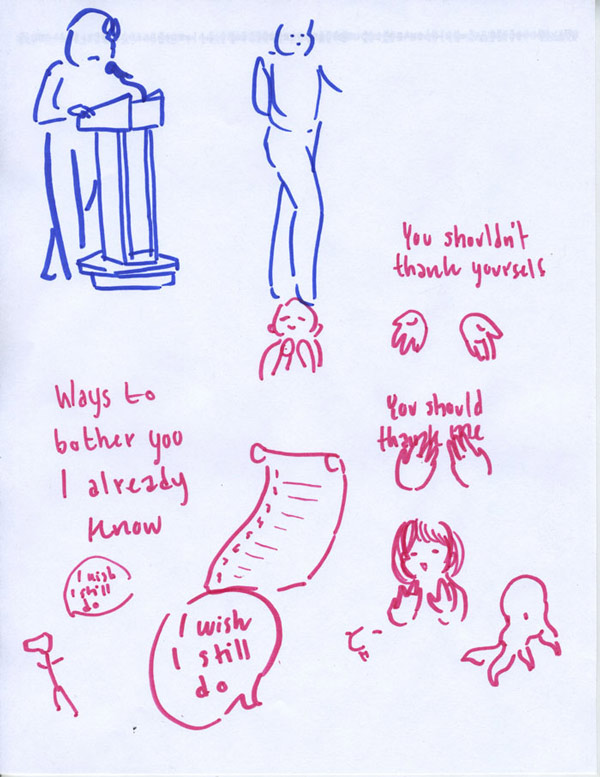 You shouldn't
thank yourself
You should
thank me
Ways to
bother you
I already
know
I wish
I still
do
I wish
I still
do